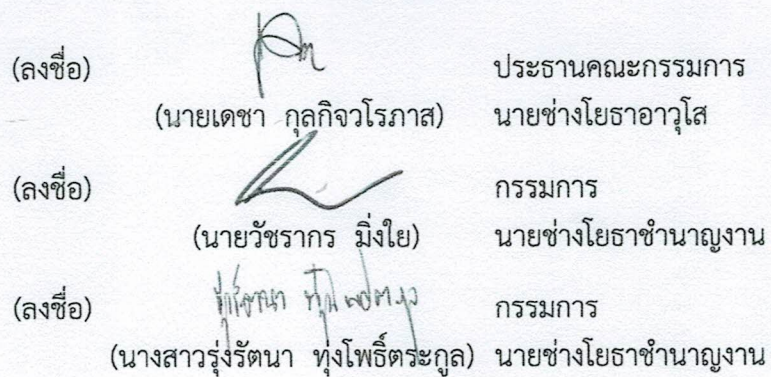 (ลงชื่อ) ประธานคณะกรรมการ
(นายเดชา กุลกิจวโรภาส) นายช่างโยธาอาวุโส
(ลงชื่อ) กรรมการ
(นายวัชรากร มิ่งใย) นายช่างโยธาชำนาญงาน
(ลงชื่อ) กรรมการ
(นางสาวรุ่งรัตนา ทุ่งโพธิ์ตระกูล) นายช่างโยธาชำนาญงาน